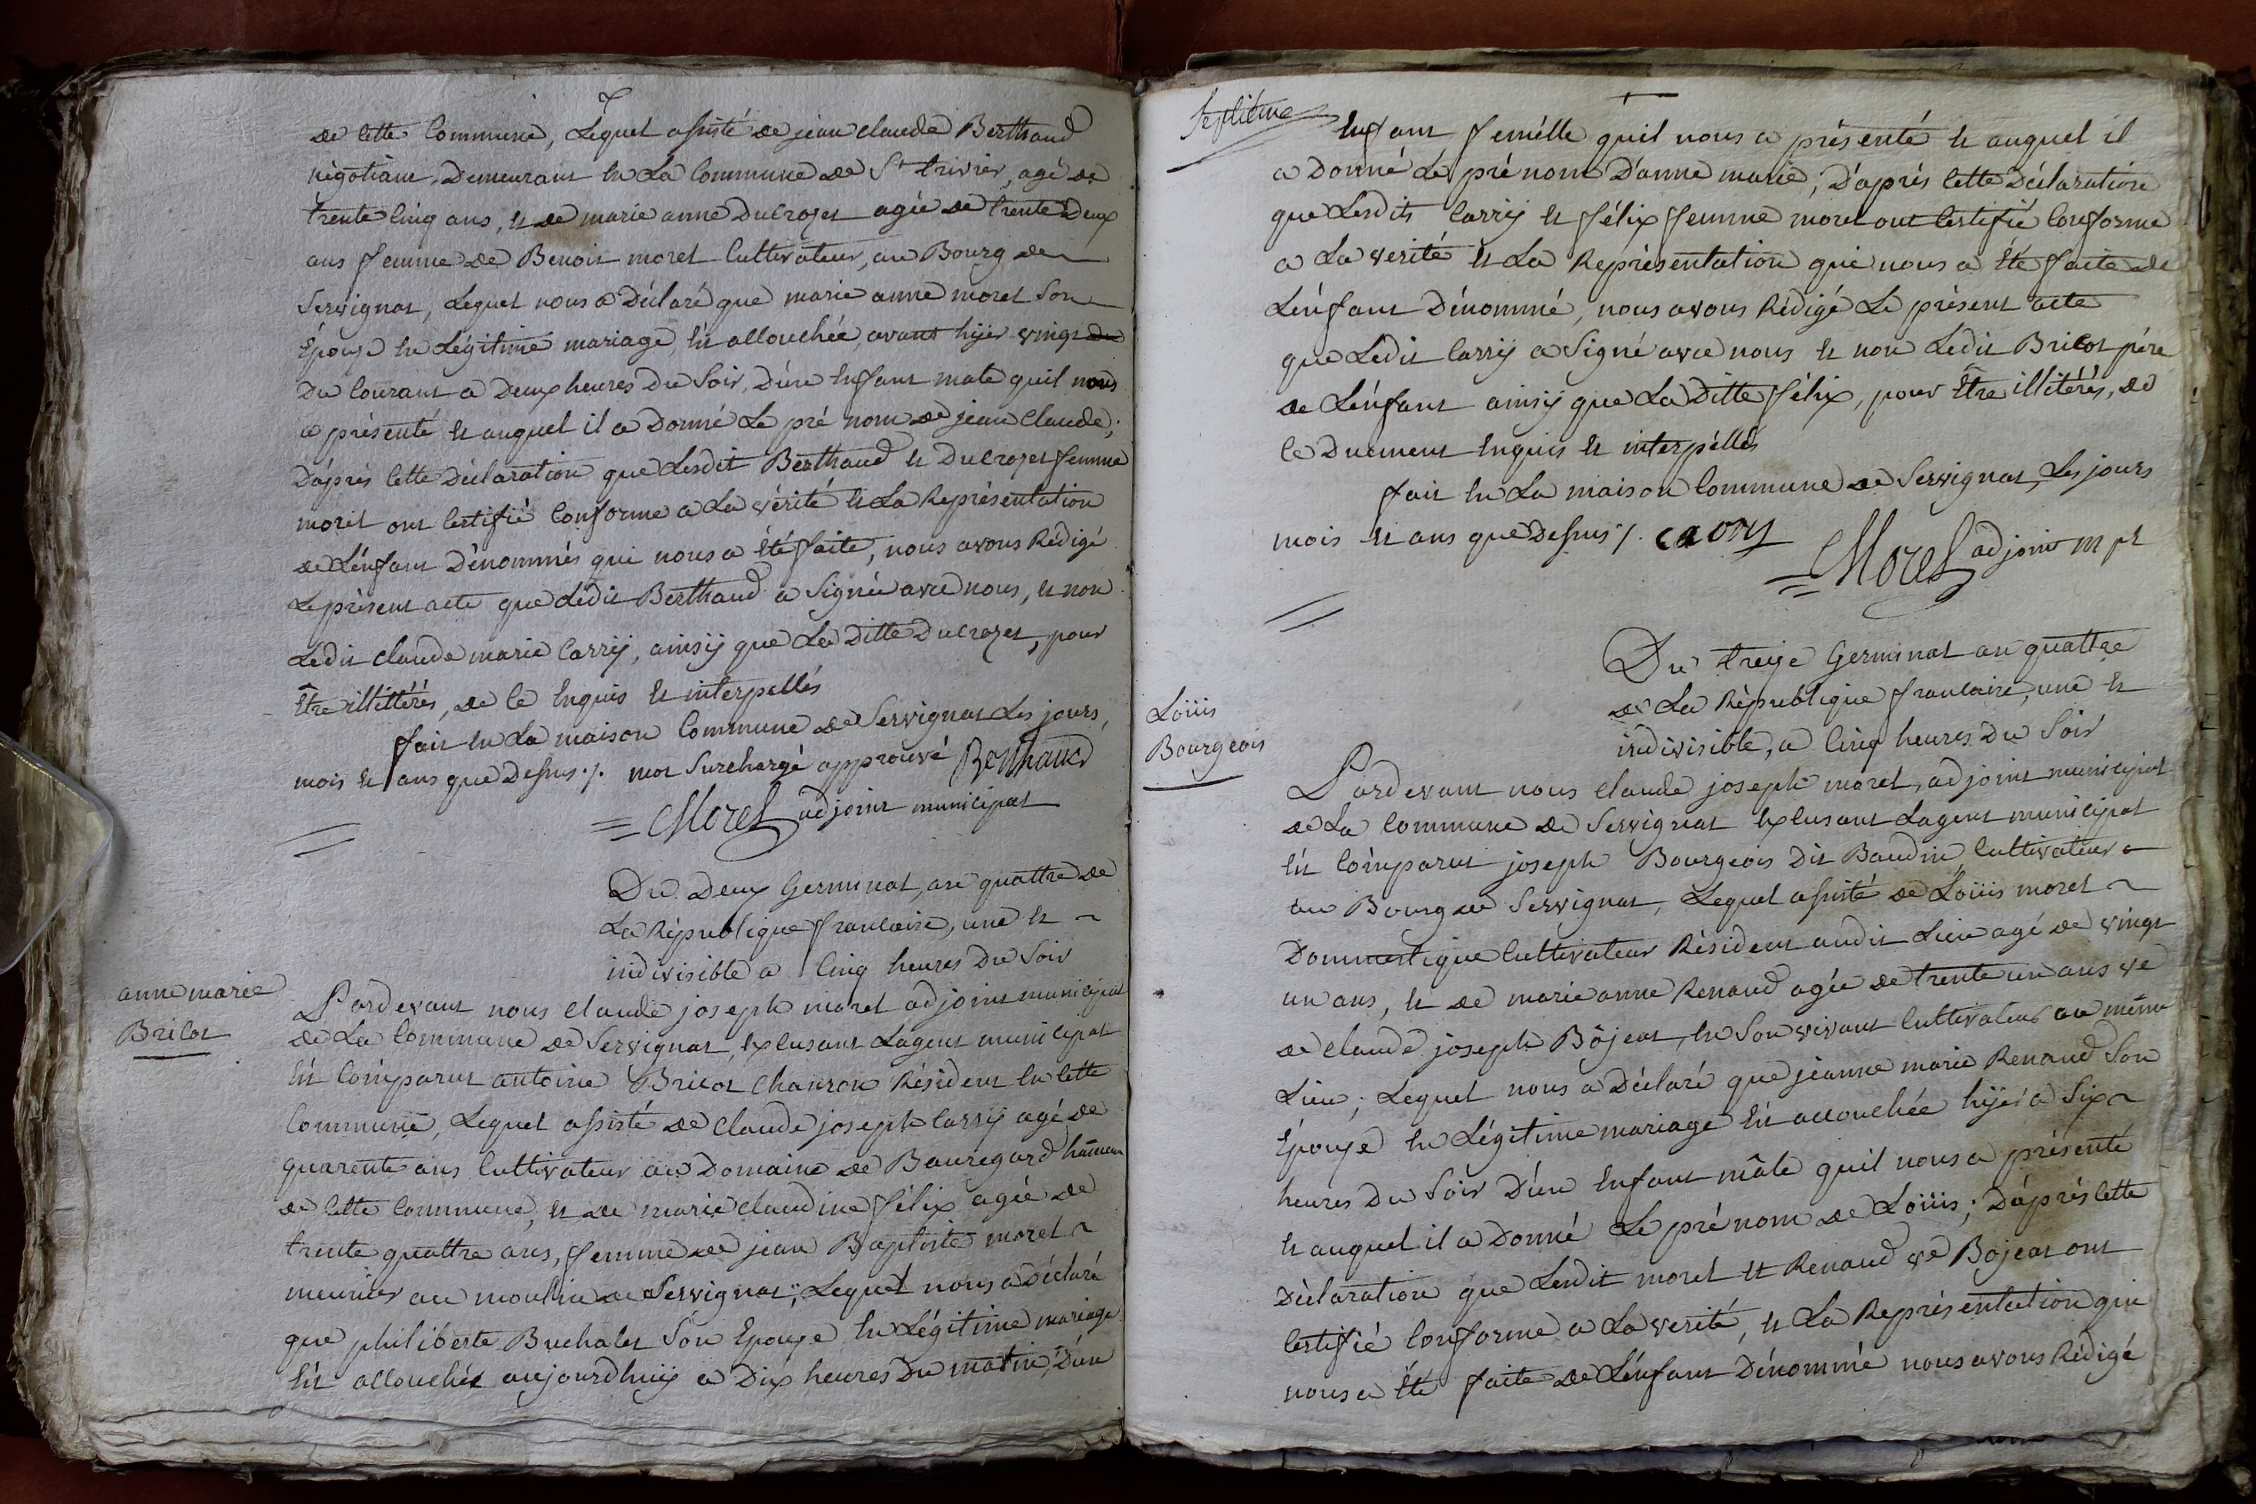 de cette Commune, Lequel assisté de jean claude Berthaud
négotiant, Demeurant en La Commune de St trivier, agé de
trente cinq ans, et de marie anne Ducrozet agée de trente Deux
ans femme de Benoit morel Cultivateur, au Bourg de
Servignat, Lequel nous a Déclaré que marie anne morel Son
Epouse en Légitime mariage, est accouchée, avant hyer vingt
Du Courant a Deux heures Du Soir, D'un Enfant male quil nous
a présenté et auquel il a Donné Le pré nom de jean claude;
D'après cette Déclaration que Lesdit Berthaud et Ducrozet femme
morel ont Certifié Conforme a La vérité et La Représentation
de L'énfant Dénommés qui nous a été faite, nous avons Rédigé
Le présent acte que Lédit Berthaud a Signée avec nous, et non
Lédit claude marie Carrÿ, ainsÿ que La Ditte Ducrozet, pour
Être illittérés, de ce Enquis et interpellés
fait en La maison Commune de Servignat Les jours,
mois et ans que Dessus ./. mot Surchargé approuvé Berthaud
Morel adjoint municipal
Du Deux Germinal, an quattre de
La République francaise, une et
indivisible a Cinq heures Du Soir
anne marie
Bricot
Pardevant nous claude joseph morel adjoint municipal
de La Commune de Servignat, Excusant L'agent municipal
Est Comparut antoine Bricot Chanron Résident en cette
Commune, Lequel assisté de claude joseph Carrÿ agé de
quarente ans Cultivateur au Domaine de Bauregard hameau
de cette Commune, et de marie claudine félix agée de
trente quattre ans, femme de jean Baptiste morel
meunier au moulin de Servignat; Lequel nous a Déclaré
que philiberte Buchalet Son Epouse en Légitime mariage
Est accouchée aujourdhuÿ a Dix heures Du matin, D'un
Septième
Enfant femélle quil nous a présenté et auquel il
a Donné Le pré nom D'anne marie, D'après cette Déclaration
que Lesdits Carrÿ et félix femme morel ont Certifié Conforme
a La verité et La Représentation qui nous a Eté faite de
L'énfant Dénommé, nous avons Rédigé Le présent acte
que Ledit Carrÿ a Signé avec nous et non Ledit Bricot pére
de L'énfant ainsÿ que La Ditte félix, pour Être illitérés, de
ce Duement Enquis et interpéllés
fait en La maison Commune de Servignat, Les jours
mois et ans que Dessus ./. Carry
Morel adjoint mpl
Du treize Germinal an quattre
de La République francaise, une et
indivisible, a Cinq heures Du Soir
Loüis
Bourgeois
Pardevant nous claude joseph morel, adjoint municipal
de La Commune de Servignat Excusant L'agent municipal
Est Comparut joseph Bourgeois Dit Baudin Cultivateur
au Bourg de Servignat, Lequel assisté de Loüis morel
Dommestique Cultivateur Résident audit Lieu agé de vingt
un ans, et de marie anne Renaud agée de trente un ans ve
de claude joseph Bôjeat, en Son vivant Cultivateur au même
Lieu; Lequel nous a Déclaré que jeanne marie Renaud Son
Epouse en Légitime mariage Est accouchée hÿer a Six
heures Du Soir D'un Enfant mâle quil nous a présenté
et auquel il a Donné Le pré nom de Loüis; D'après cette
Déclaration que Lesdit morel et Renaud ve Bojeat ont
Certifié Conforme a La verité, et La Représentation qui
nous a Eté faite de L'énfant Dénommé nous avons Rédigé